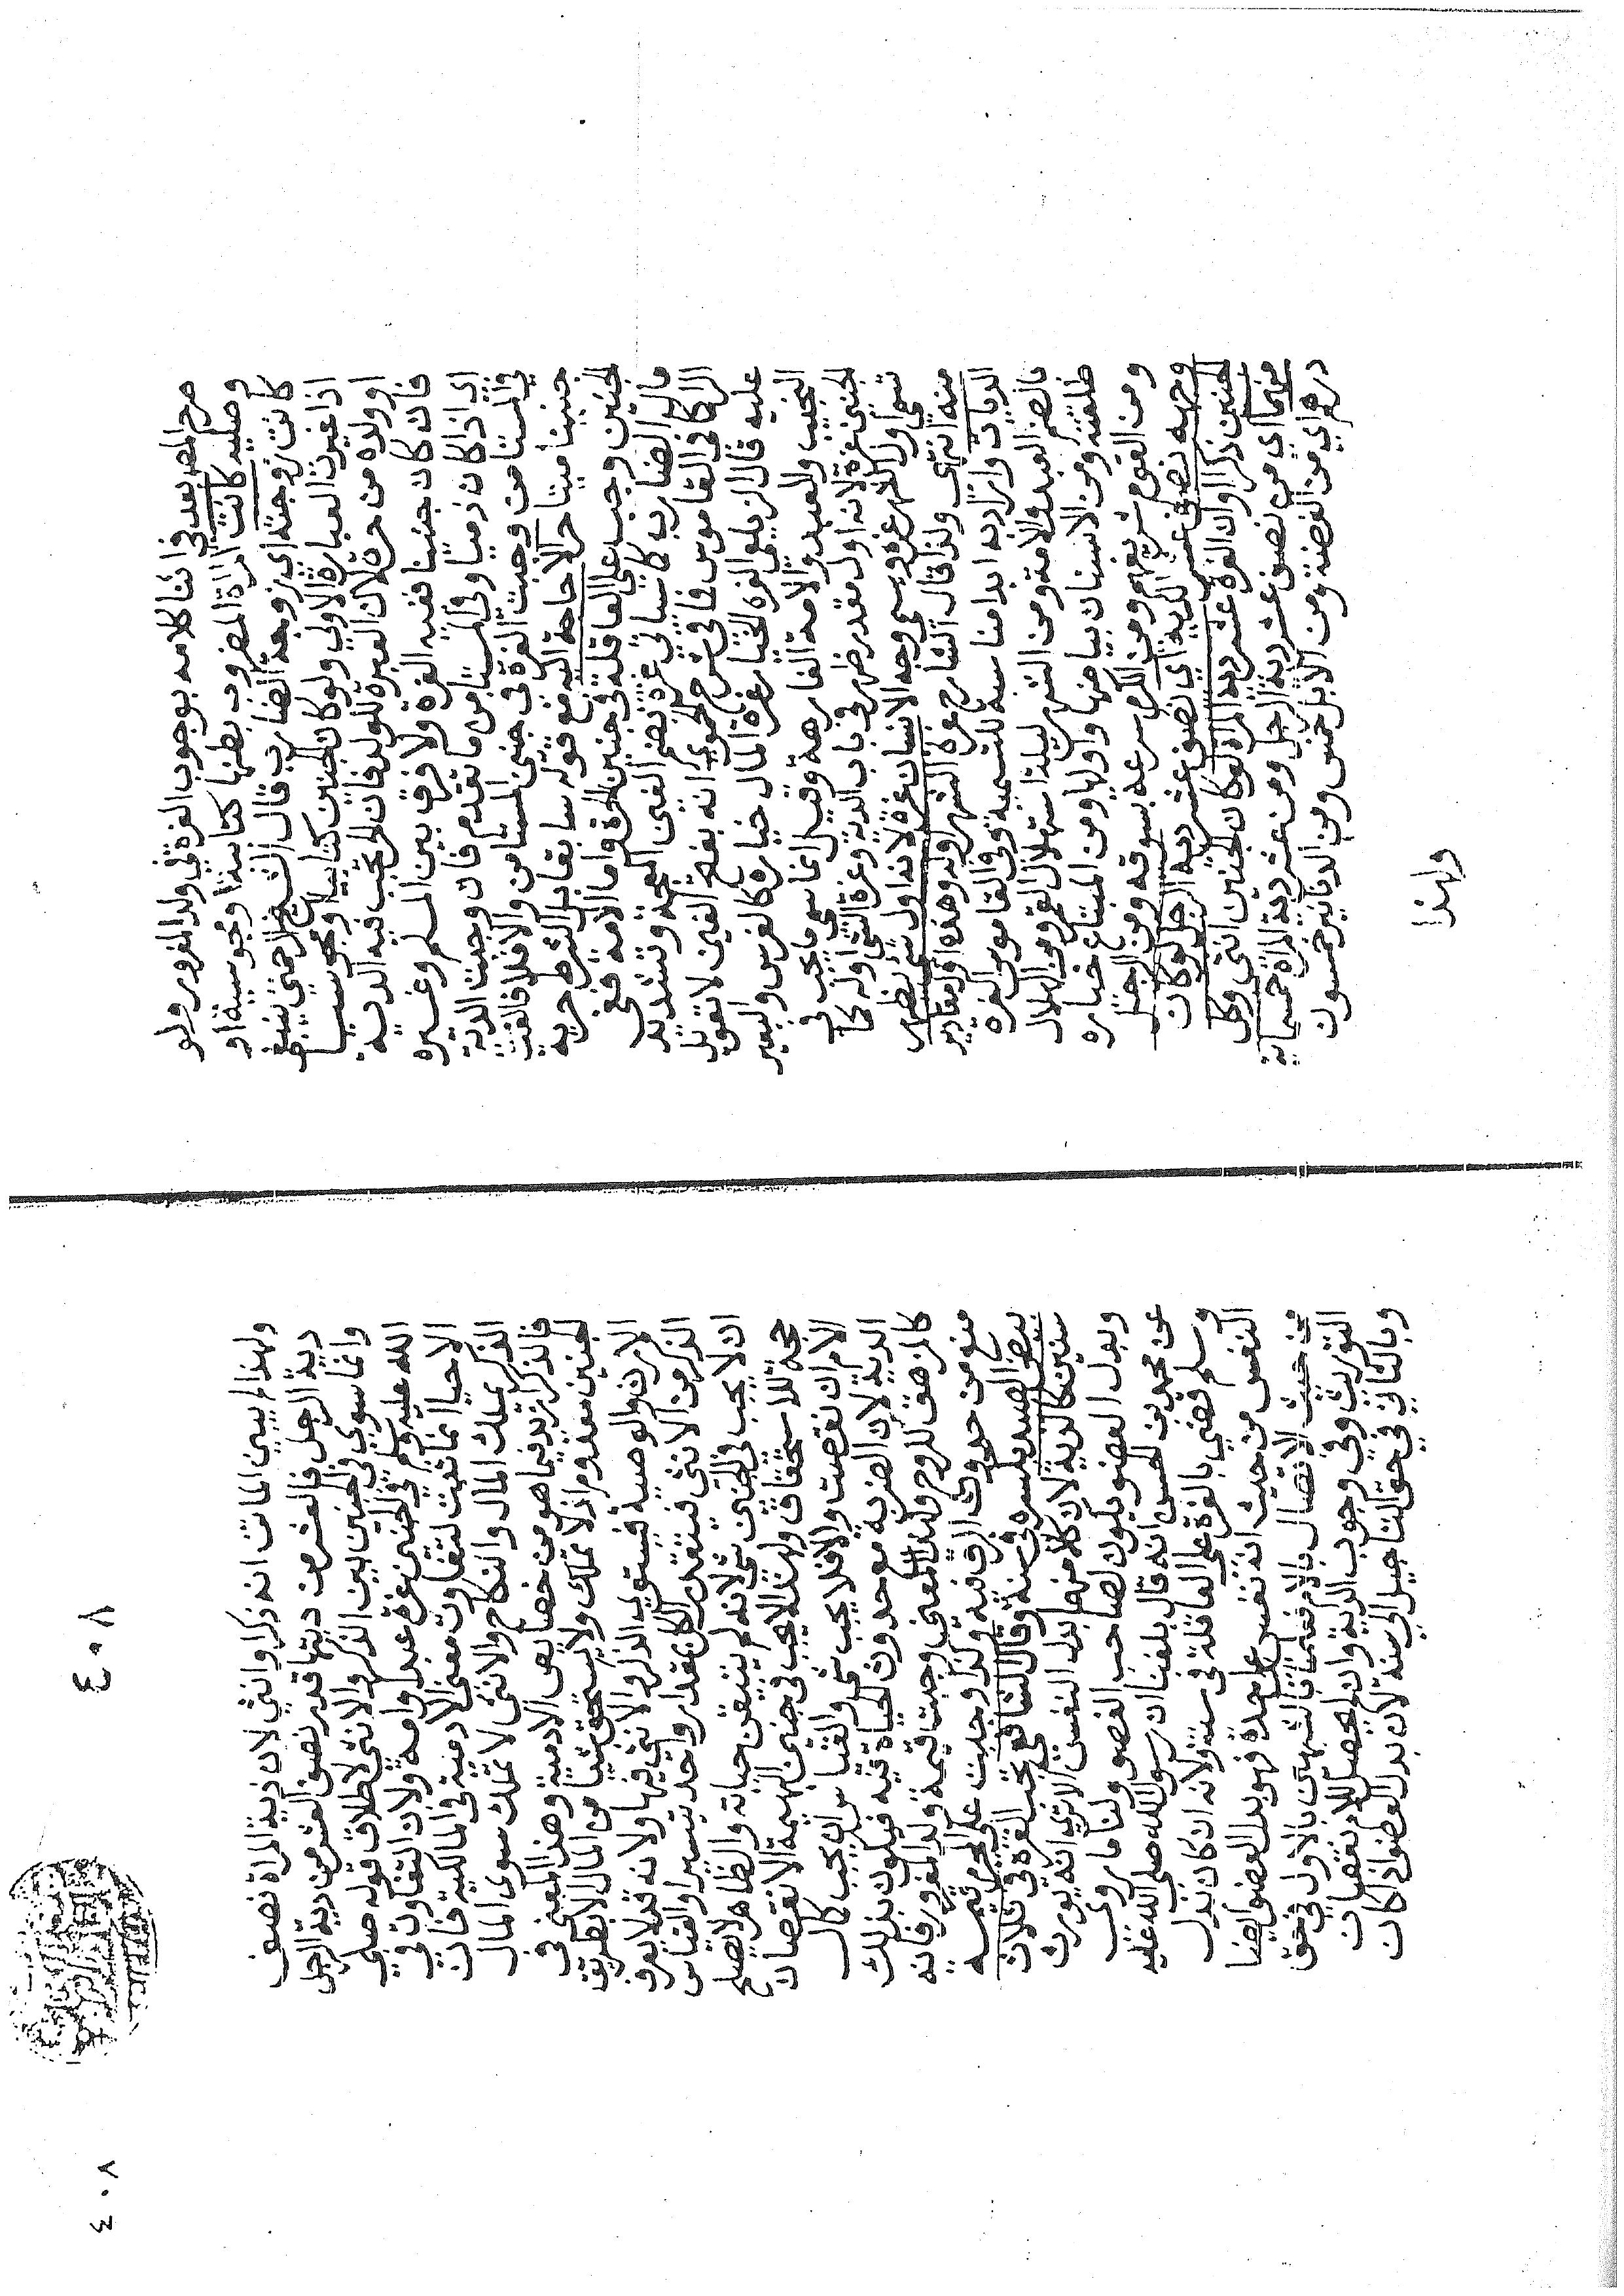 صرح المص بعد في اثنا كلامه بوجوب الغرة في ولد المغرور ولو
وصلية كانت المراة المضروب بطنها كتابية او مجوسية او
كانت زوجته اي زوجة الضارب قال الشيخ الرحمتي ينبغي
اذا غيرت العبارة الاولي ولو كان الجنين كتابيا او مجوسيا
او ولده من حرة لان العبرة للولد فان لم تجب فيه الدية
فان كان جنينا ففيه الغرة ولا فرق بين المسلم وغيره
اي اذا كان ذميا وفي المستامن ما تقدم فان وجبت الدية
في المستامن وجبت الغرة في جنين المستامن والا فلا فالقت
جنينا ميتا حرا لا حاجة اليه مع قوله سابقا بشرط حرية
الجنين وجب علي العاقلة في جنين الحرة واما الامة ففي
مال الضارب كما سياتي غرة بضم الغين المعجمة وتشديد
الرا كما في القاموس فما في شرح الحموي انه بفتح الغين لا تعويل
عليه قال الزيلعي الغرة الخيار غرة المال خياره كالفرس والبعير
النجيب والعبد والامة الفارهة وقيل انما سمي ما يجب في
الجنين غرة لانه اول مقدر ظهر في باب الدية وغرة الشي اوله كما
تسمي اول الشهر غرة ويسمي وجه الانسان غرة لانه اول شي يظهر
منه انتهي ولذا قال الشارح غرة الشهر اوله وهذه اول مقادير
الديات واراد به ابدا مناسبة للتسمية وفي القاموس الغرة
بالضم العبد والامة ومن الشهر ليلة استهلال القمر ومن الهلال
طلعته ومن الاسنان بياضها واولها ومن المتاع خياره
ومن القوم شريفهم ومن الكرم سرعة بسوقه ومن الرجل
وجهه نصف عشر الدية اي نصف عشر دية الرجل لو كان
الجنين ذكرا وان الغرة عشر دية المراة لو كان الجنين انثي وكل
منهما اي من نصف عشر دية الرجل ومن عشر دية المراة خمسماية
درهم اي من الفضة ومن الابل خمس ومن الدنانير خمسون
ولهذا
٤٠٨
٤٠٨
ولهذا لم يبين الماتن انه ذكر او انثي لان دية المراة نصف
دية الرجل فالعشر من ديتها قدر نصف العشر من دية الرجل
وانما سوي في الجنين بين الذكر والانثي لاطلاق قوله صلي
الله عليه وسلم في الجنين غرة عبد او امة ولان التفاوت في
الاحيا انما ثبت لتفاوت معني الادمية في المالكية فان
الذكر يملك المال والنكاح والانثي لا تملك سوي المال
فالذكر يزيد فيما هو من خصايص الادمية وهذا المعني في
الجنين معدوم اذ لا تملك ولا يستحق شيا من المال الا بطريق
الارث والوصية فيستوي الذكر والانثي فيها ولانه قد لا يعرف
الذكر من الانثي فيتقدر الكل بمقدار واحد تيسيرا والقياس
ان لا يجب في الجنين شي لانه لم يتيقن حياته والظاهر لا يصلح
حجة للاستحقاق ولهذا لا يجب في جنين البهيمة الا نقصان
الام ان نقصت والا فلا يجب شي والقياس ان يجب كمال
الدية لان الضربة مع حدوث الحياة فيه فيكون بذلك
كالمزهق للروح ولهذا المعني وجبت قيمة ولد المغرور فانه
منع من حدوث الرق فيه وكذا وجبت علي المحرم قيمة
بيض الصيد بكسره في سنة وقال الشافعي تجب الغرة في ثلاث
سنين كالدية لان كلا منهما بدل النفس الا تري انه يورث
وبدل العضو يكون لصاحب العضو ولنا ما روي
عن محمد بن الحسن انه قال بلغنا ان رسول الله صلي الله عليه
وسلم قضي بالغرة علي العاقلة في سنة ولانه ان كان بدل
النفس من حيث انه نفس علي حدة فهو بدل العضو ايضا
من حيث الاتصال بالام فعملنا بالشبهين بالاول في حق
التوريث وفي وجوب الدية وان لم يحصل للام نقصان
وبالثاني في حق التاجيل الي سنة لان بدل العضو اذا كان